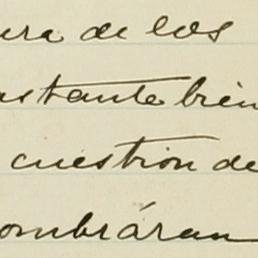 ura de los
astante bien
cuestion de
ombráran